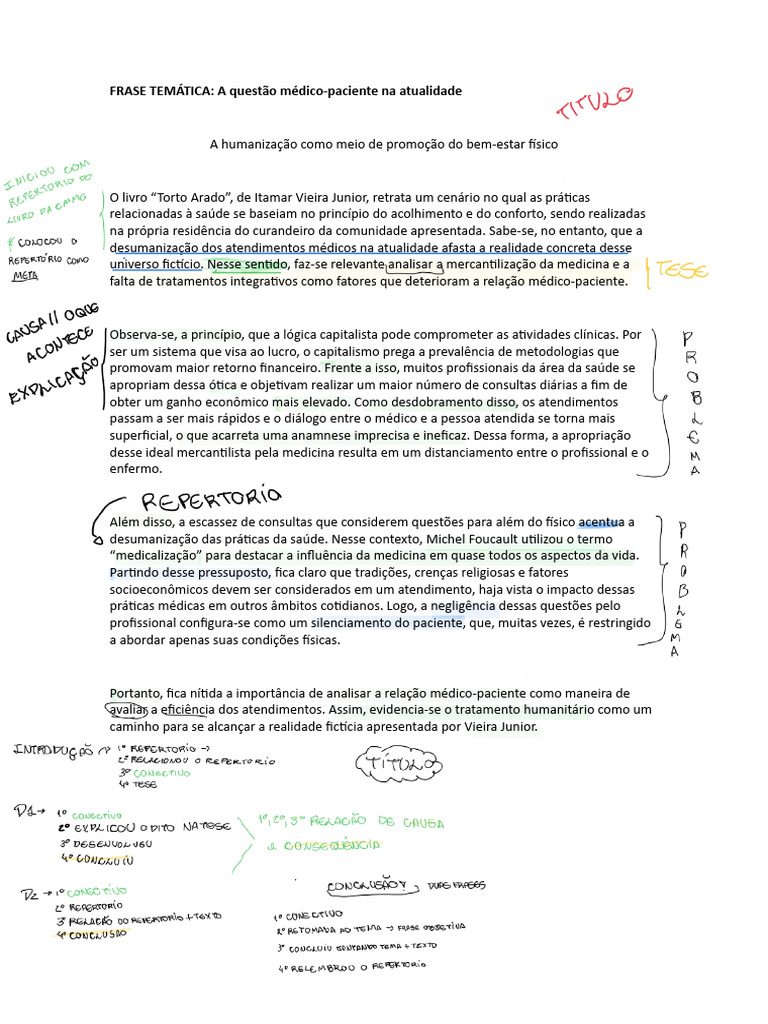 FRASE TEMÁTICA: A questão médico-paciente na atualidade
TITULO
A humanização como meio de promoção do bem-estar físico
INICIOU COM
REPERTORIO DO
LIVRO DA CMMG
* COLOCOU O
REPERTÓRIO COMO
META
O livro “Torto Arado”, de Itamar Vieira Junior, retrata um cenário no qual as práticas
relacionadas à saúde se baseiam no princípio do acolhimento e do conforto, sendo realizadas
na própria residência do curandeiro da comunidade apresentada. Sabe-se, no entanto, que a
desumanização dos atendimentos médicos na atualidade afasta a realidade concreta desse
universo fictício. Nesse sentido, faz-se relevante analisar a mercantilização da medicina e a
falta de tratamentos integrativos como fatores que deterioram a relação médico-paciente.
TESE
CAUSA // O QUE
ACONTECE
EXPLICAÇÃO
Observa-se, a princípio, que a lógica capitalista pode comprometer as atividades clínicas. Por
ser um sistema que visa ao lucro, o capitalismo prega a prevalência de metodologias que
promovam maior retorno financeiro. Frente a isso, muitos profissionais da área da saúde se
apropriam dessa ótica e objetivam realizar um maior número de consultas diárias a fim de
obter um ganho econômico mais elevado. Como desdobramento disso, os atendimentos
passam a ser mais rápidos e o diálogo entre o médico e a pessoa atendida se torna mais
superficial, o que acarreta uma anamnese imprecisa e ineficaz. Dessa forma, a apropriação
desse ideal mercantilista pela medicina resulta em um distanciamento entre o profissional e o
enfermo.
PROBLEMA
REPERTORIO
Além disso, a escassez de consultas que considerem questões para além do físico acentua a
desumanização das práticas da saúde. Nesse contexto, Michel Foucault utilizou o termo
“medicalização” para destacar a influência da medicina em quase todos os aspectos da vida.
Partindo desse pressuposto, fica claro que tradições, crenças religiosas e fatores
socioeconômicos devem ser considerados em um atendimento, haja vista o impacto dessas
práticas médicas em outros âmbitos cotidianos. Logo, a negligência dessas questões pelo
profissional configura-se como um silenciamento do paciente, que, muitas vezes, é restringido
a abordar apenas suas condições físicas.
PROBLEMA
Portanto, fica nítida a importância de analisar a relação médico-paciente como maneira de
avaliar a eficiência dos atendimentos. Assim, evidencia-se o tratamento humanitário como um
caminho para se alcançar a realidade fictícia apresentada por Vieira Junior.
INTRODUÇÃO → 1º REPERTORIO →
2º RELACIONOU O REPERTORIO
3º CONECTIVO
4º TESE
TÍTULO
D1 → 1º CONECTIVO
2º EXPLICOU O DITO NA TESE
3º DESENVOLVEU
4º CONCLUIU
1º, 2º, 3º RELAÇÃO DE CAUSA
e CONSEQUÊNCIA
D2 → 1º CONECTIVO
2º REPERTORIO
3º RELAÇÃO DO REPERTORIO + TEXTO
4º CONCLUSÃO
CONCLUSÃO DUAS FRASES
1º CONECTIVO
2º RETOMADA AO TEMA → FRASE OBJETIVA
3º CONCLUIU JUNTANDO TEMA + TEXTO
4º RELEMBROU O REPERTORIO